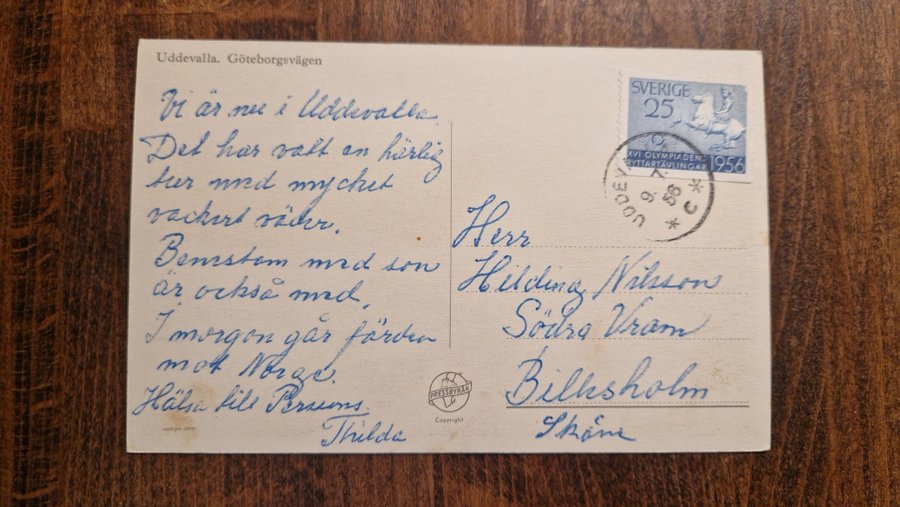 Uddevalla. Göteborgsvägen
Vi är nu i Uddevalla.
Det har vatt en härlig
tur med mycket
vackert väder.
med son
är också med.
I morgon går färden
mot Norge.
Hälsa till Perssons.
Thilda
PRESSBYRÅN
Copyright
SVERIGE
25
XVI OLYMPIADENS
RYTTARTÄVLINGAR
1956
UDDEV
9.7.
56
* C *
Herr
Hilding Nilsson
Södra Vram
Billesholm
Skåne